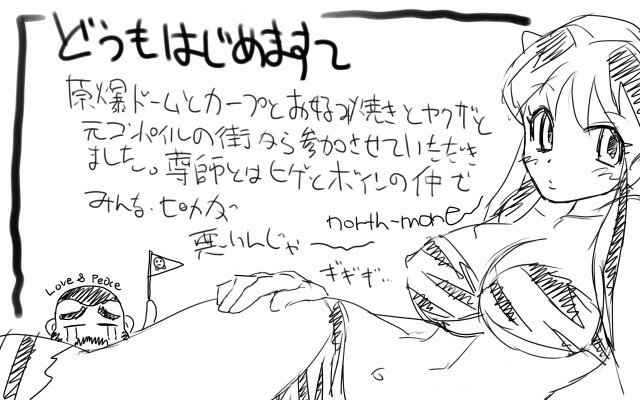 どうもはじめますて
原爆ドームとカープとお好み焼きとヤクザと
元コンパイルの街から参加させていただき
ました。導師とはヒゲとボインの仲で
みんな・ピカが
悪いんじゃ
north-mone
ギギギ…
Love & Peace